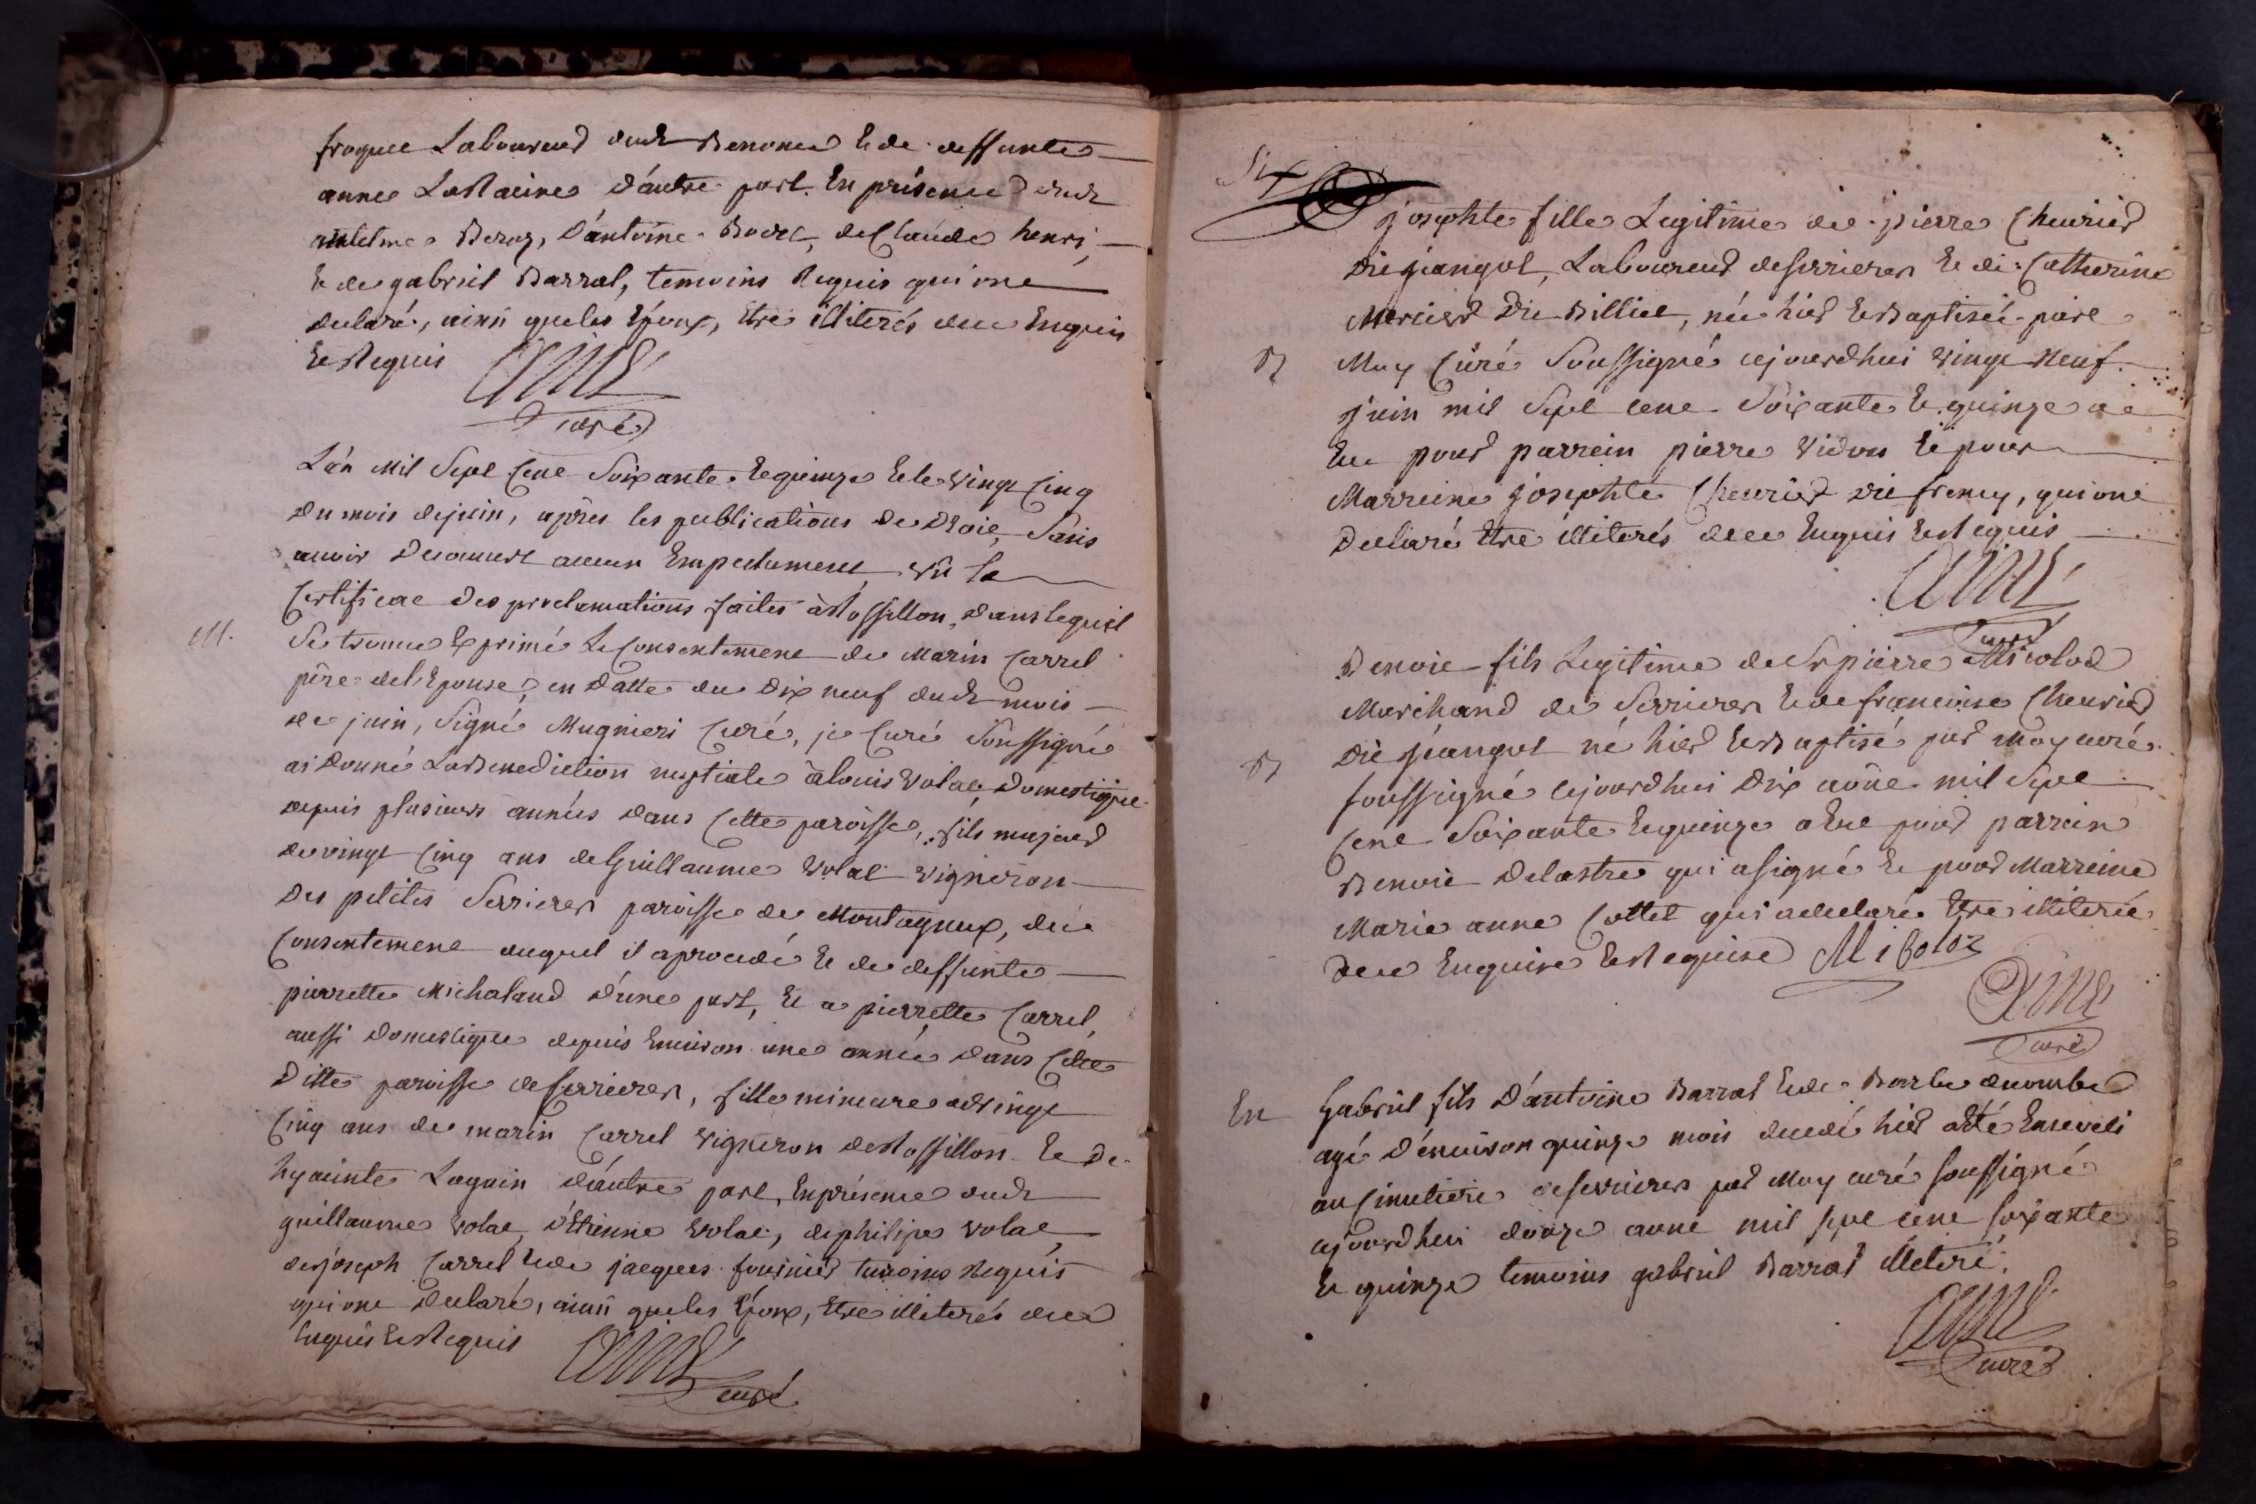 Laboureur dud Benonce & de deffunte
anne LaRacine d'autre part. En présence dud
antelme Beroz, D'antoine Bovet, de Claude henri,
& de gabriel Barral, temoins Requis qui ont
declaré, ainsi que les Epoux, Etre illiterés de ce Enquis
& Requis Aimé
Curé
L'an Mil Sept Cent Soixante & quinze & le vingt Cinq
du mois de juin, après les publications de Droit, Sans
avoir Decouvert aucun Empechement vû le
Certificat des proclamations faites à Rossillon, dans lequel
M. Se trouve Exprimé Le Consentement de Marin Carrel
père de l'Epouse, en datte du Dix neuf dud mois
de juin, Signé Mugnieri Curé, je Curé Soussigné
ai donné La Benediction nuptiale à Louis Volat, Domestique
depuis plusieurs années dans Cette paroisse, fils majeur
de vingt Cinq ans de Guillaume Volat vigneron
des petites Serrieres paroisse de Montagneux, du
Consentement duquel il a procedé & de deffunte
pierrette Michaland d'une part, & a pierrette Carrel,
aussi domestique depuis Environ une année dans Cette
Ditte paroisse de Serrieres, fille mineure de vingt
Cinq ans de marin Carrel vigneron de Rossillon & De
hyacinte Laguin d'autre part, En présence dud
guillaume Volat, d'Etienne Volat, de philipe Volat,
de joseph Carrel & de jacques fournier temoins Requis
qui ont Declaré, ainsi que les Epoux, Etre illiterés de ce
Enquis & Requis Aimé
Curé
Six
josephte fille Legitime de pierre Cheurier
Dit jeangot, Laboureur de Serrieres & de Catherine
Mercier Dit Billiet, née hier & Baptisée par
B Moy Curé Soussigné cejourdhui vingt Neuf
juin mil Sept cent Soixante & quinze a
Eu pour parrein pierre Vidon & pour
Marreine josephte Cheurier dit fremy, qui ont
Declaré Etre illiterés de ce Enquis & Requis
Aimé
Curé
Benoit fils Legitime de Sr pierre Micolod
Marchand de Serrieres & de francoise Cheurier
B Dit jeangot né hier & Baptisé par moy curé
soussigné cejourdhui Dix aout mil Sept
Cent Soixante & quinze a Eu pour parrein
Benoit Delastre qui a signé & pour Marreine
Marie anne Cottet qui a declaré Etre illiterée
de ce Enquise & Requise Micoloz
Aimé
Curé
En Gabriel fils D'antoine Barral & de Barbe
agé d'environ quinze mois decedé hier a été Enseveli
au Cimetiere de Serrieres par Moy curé soussigné
cejourdhui douze aout mil sept cent soixante
& quinze temoins gabriel Barral illeteré.
Aimé
Curé